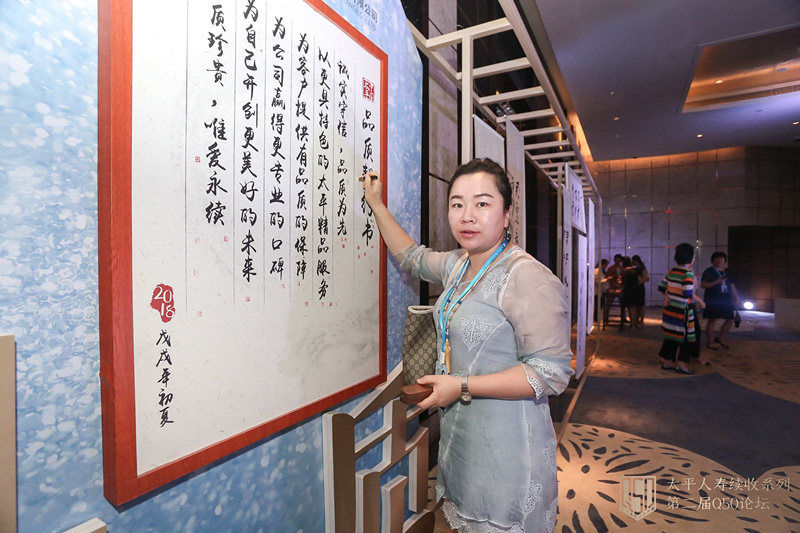 限公司
品质 约书
诚实守信，品质为先
以更具特色的太平精品服务
为客户提供有品质的保障
为公司赢得更专业的口碑
为自己开创更美好的未来
质珍贵，唯爱永续
2018
戊戌年初夏
太平人寿续收系列
第二届Q50论坛